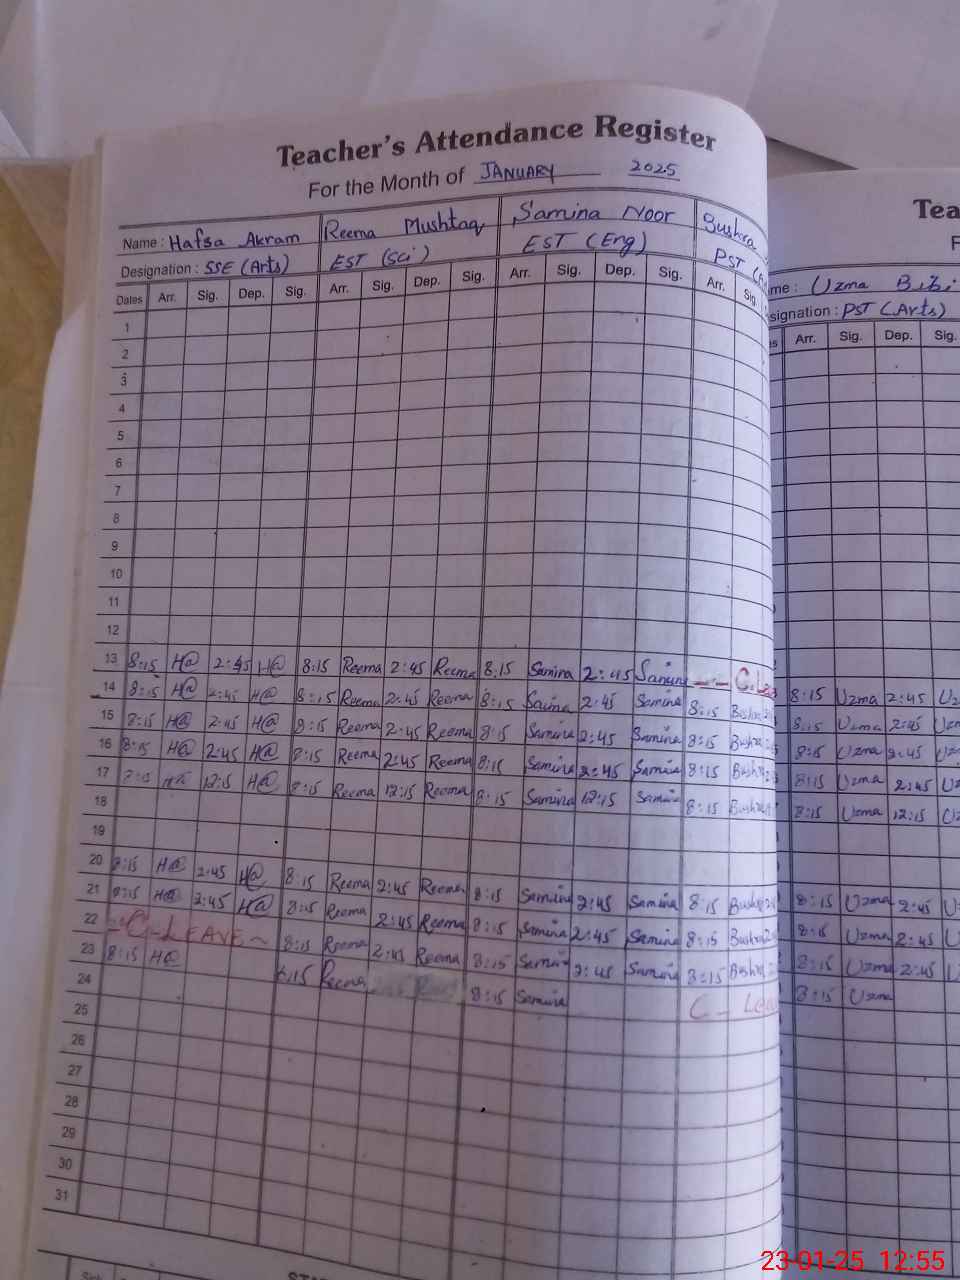 Teacher's Attendance Register
For the Month of JANUARY 2025
Name: Hafsa Akram Reema Mushtaq Samina Noor Bushra
Designation: SSE (Arts) EST (Sci) EST (Eng) PST (A
Dates Arr. Sig. Dep. Sig. Arr. Sig. Dep. Sig. Arr. Sig. Dep. Sig. Arr. Sig.
1
2
3
4
5
6
7
8
9
10
11
12
13 8:15 H@ 2:45 H@ 8:15 Reema 2:45 Reema 8:15 Samina 2:45 Samina C.Lea
14 8:15 H@ 2:45 H@ 8:15 Reema 2:45 Reema 8:15 Samina 2:45 Samina 8:15 Bushra
15 8:15 H@ 2:45 H@ 8:15 Reema 2:45 Reema 8:15 Samina 2:45 Samina 8:15 Bushra
16 8:15 H@ 2:45 H@ 8:15 Reema 2:45 Reema 8:15 Samina 2:45 Samina 8:15 Bushra
17 8:15 H@ 12:15 H@ 8:15 Reema 12:15 Reema 8:15 Samina 12:15 Samina 8:15 Bushra
18
19
20 8:15 H@ 2:45 H@ 8:15 Reema 2:45 Reema 8:15 Samina 2:45 Samina 8:15 Bushra
21 8:15 H@ 2:45 H@ 8:15 Reema 2:45 Reema 8:15 Samina 2:45 Samina 8:15 Bushra
22 C-LEAVE 8:15 Reema 2:45 Reema 8:15 Samina 2:45 Samina 8:15 Bushra
23 8:15 H@ 8:15 Reema 8:15 Samina C_Lea
24
25
26
27
28
29
30
31
Tea
F
me: Uzma Bibi
signation: PST (Arts)
es Arr. Sig. Dep. Sig.
8:15 Uzma 2:45 Uz
8:15 Uzma 2:45 Uz
8:15 Uzma 2:45 Uz
8:15 Uzma 2:45 Uz
8:15 Uzma 12:15 Uz
8:15 Uzma 2:45 U
8:15 Uzma 2:45 U
8:15 Uzma 2:45 U
8:15 Uzma
23-01-25 12:55